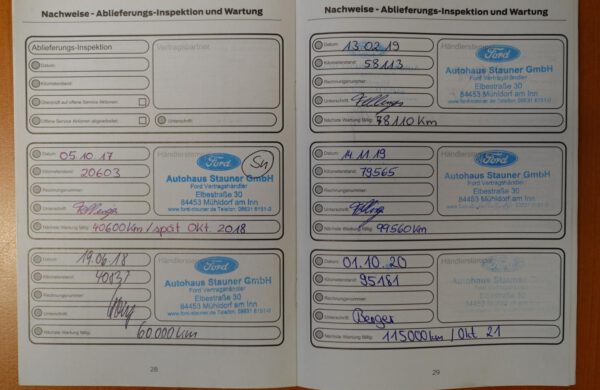 Nachweise - Ablieferungs-Inspektion und Wartung
Ablieferungs-Inspektion
Vertragspartner
Datum:
Kilometerstand:
Überprüft auf offene Service Aktionen
Offene Service Aktionen abgearbeitet
Unterschrift:
Datum: 05.10.17
Händlerstempel
Kilometerstand: 20603
Rechnungsnummer:
Unterschrift:
Nächste Wartung fällig: 40600Km / spät Okt. 2018
Ford
Autohaus Stauner GmbH
Ford Vertragshändler
Elbestraße 30
84453 Mühldorf am Inn
www.ford-stauner.de Telefon: 08631 6151-0
Datum: 19.06.18
Händlerstempel
Kilometerstand:
Rechnungsnummer:
Unterschrift:
Nächste Wartung fällig: 60.000km
Ford
Autohaus Stauner GmbH
Ford Vertragshändler
Elbestraße 30
84453 Mühldorf am Inn
www.ford-stauner.de Telefon: 08631 6151-0
28
Nachweise - Ablieferungs-Inspektion und Wartung
Datum: 13.02.19
Händlerstempel
Kilometerstand: 58113
Rechnungsnummer:
Unterschrift:
Nächste Wartung fällig: 78110Km
Ford
Autohaus Stauner GmbH
Ford Vertragshändler
Elbestraße 30
84453 Mühldorf am Inn
www.ford-stauner.de Telefon: 08631 6151-0
Datum: 14.11.19
Händlerstempel
Kilometerstand: 79565
Rechnungsnummer:
Unterschrift:
Nächste Wartung fällig: 99560Km
Ford
Autohaus Stauner GmbH
Ford Vertragshändler
Elbestraße 30
84453 Mühldorf am Inn
www.ford-stauner.de Telefon: 08631 6151-0
Datum: 01.10.20
Händlerstempel
Kilometerstand: 95181
Rechnungsnummer:
Unterschrift: Berger
Nächste Wartung fällig: 115000km / Okt 21
29